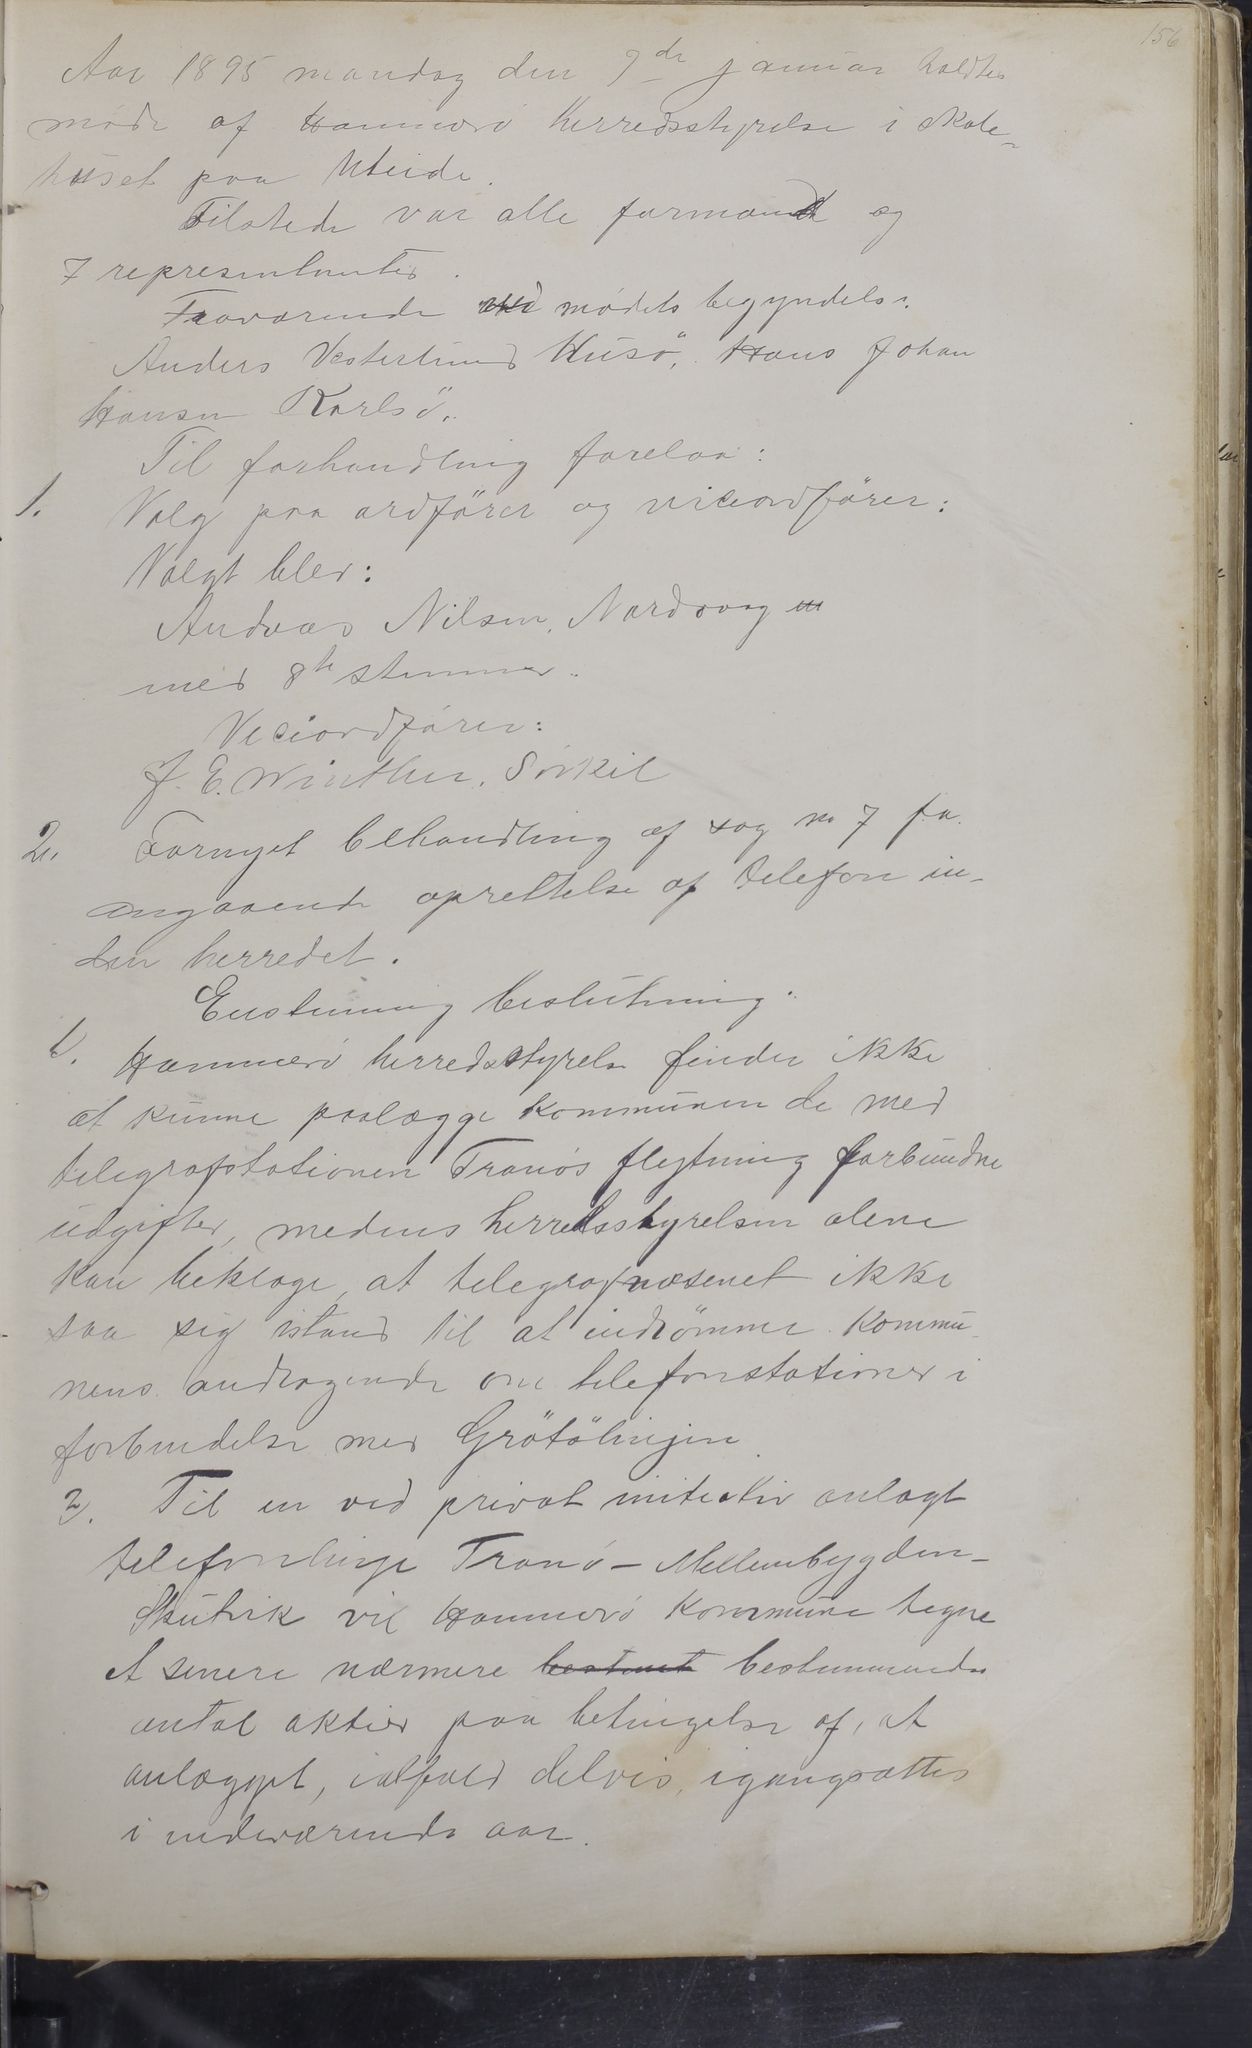 156
Aar 1895 mandag den 9de januar holdtes
møde af Hammerö Herredsstyrelse i skole-
huset paa Uteide.
Tilstede var alle formænd og
7 representanter.
Fraværende ved mødets begyndelse.
Anders Vesterlund Husö, Hans Johan
Hansen Karlsö.
Til forhandling forelaa:
1. Valg paa ordförer og viceordförer:
Valgt blev:
Andreas Nilsen, Nordvaag
med 8te stemmer.
Viciordförer:
J. E. Winther, Sörkil
2. Fornyet behandling af sag no 7 f. a.
angaaende oprettelse af telefon in-
den herredet.
Enstemmig beslutning.
1. Hammerö herredsstyrelse finder ikke
at kunne paalægge kommunen de med
telegrafstationen Tranös flytning forbundne
udgifter, medens herredsstyrelsen alene
kan beklage, at telegrafvæsenet ikke
saa sig istand til at indrömme kommu-
nens andragende om telefonstationer i
forbindelse med Grötölinjen.
2. Til en ved privat initiativ anlagt
telefonlinje Tranö - Mellembygden -
Skutvik vil Hammerö kommune tegne
et senere nærmere bestemt bestemmende
antal aktier paa betingelse af, at
anlægget, ialfald delvis, igangsættes
i indeværende aar.